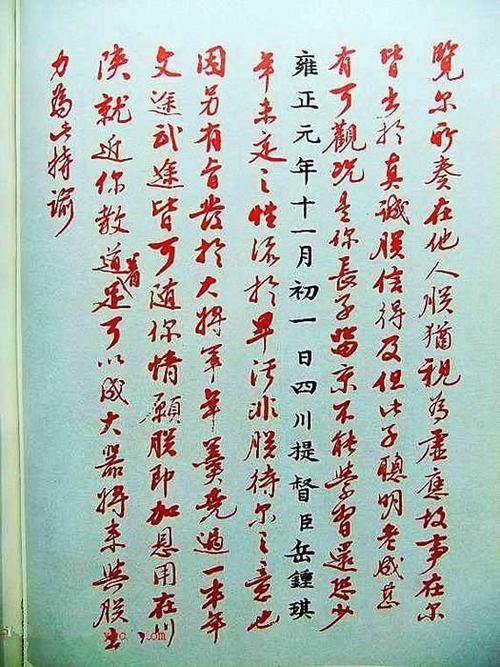 覽尔所奏在他人朕猶視為虛應故事在尔
皆出於真誠朕信得及但此子聰明老成甚
有可觀況是你長子留京不能學習還恐少
雍正元年十一月初一日四川提督臣岳鍾琪
年未定之性流於早活非朕待尔之意也
因另有旨發於大將軍年羹堯過一半年
文途武途皆可随你情願朕即加恩用在川
陝就近你教道着足可以成大器将来與朕出
力為此特諭